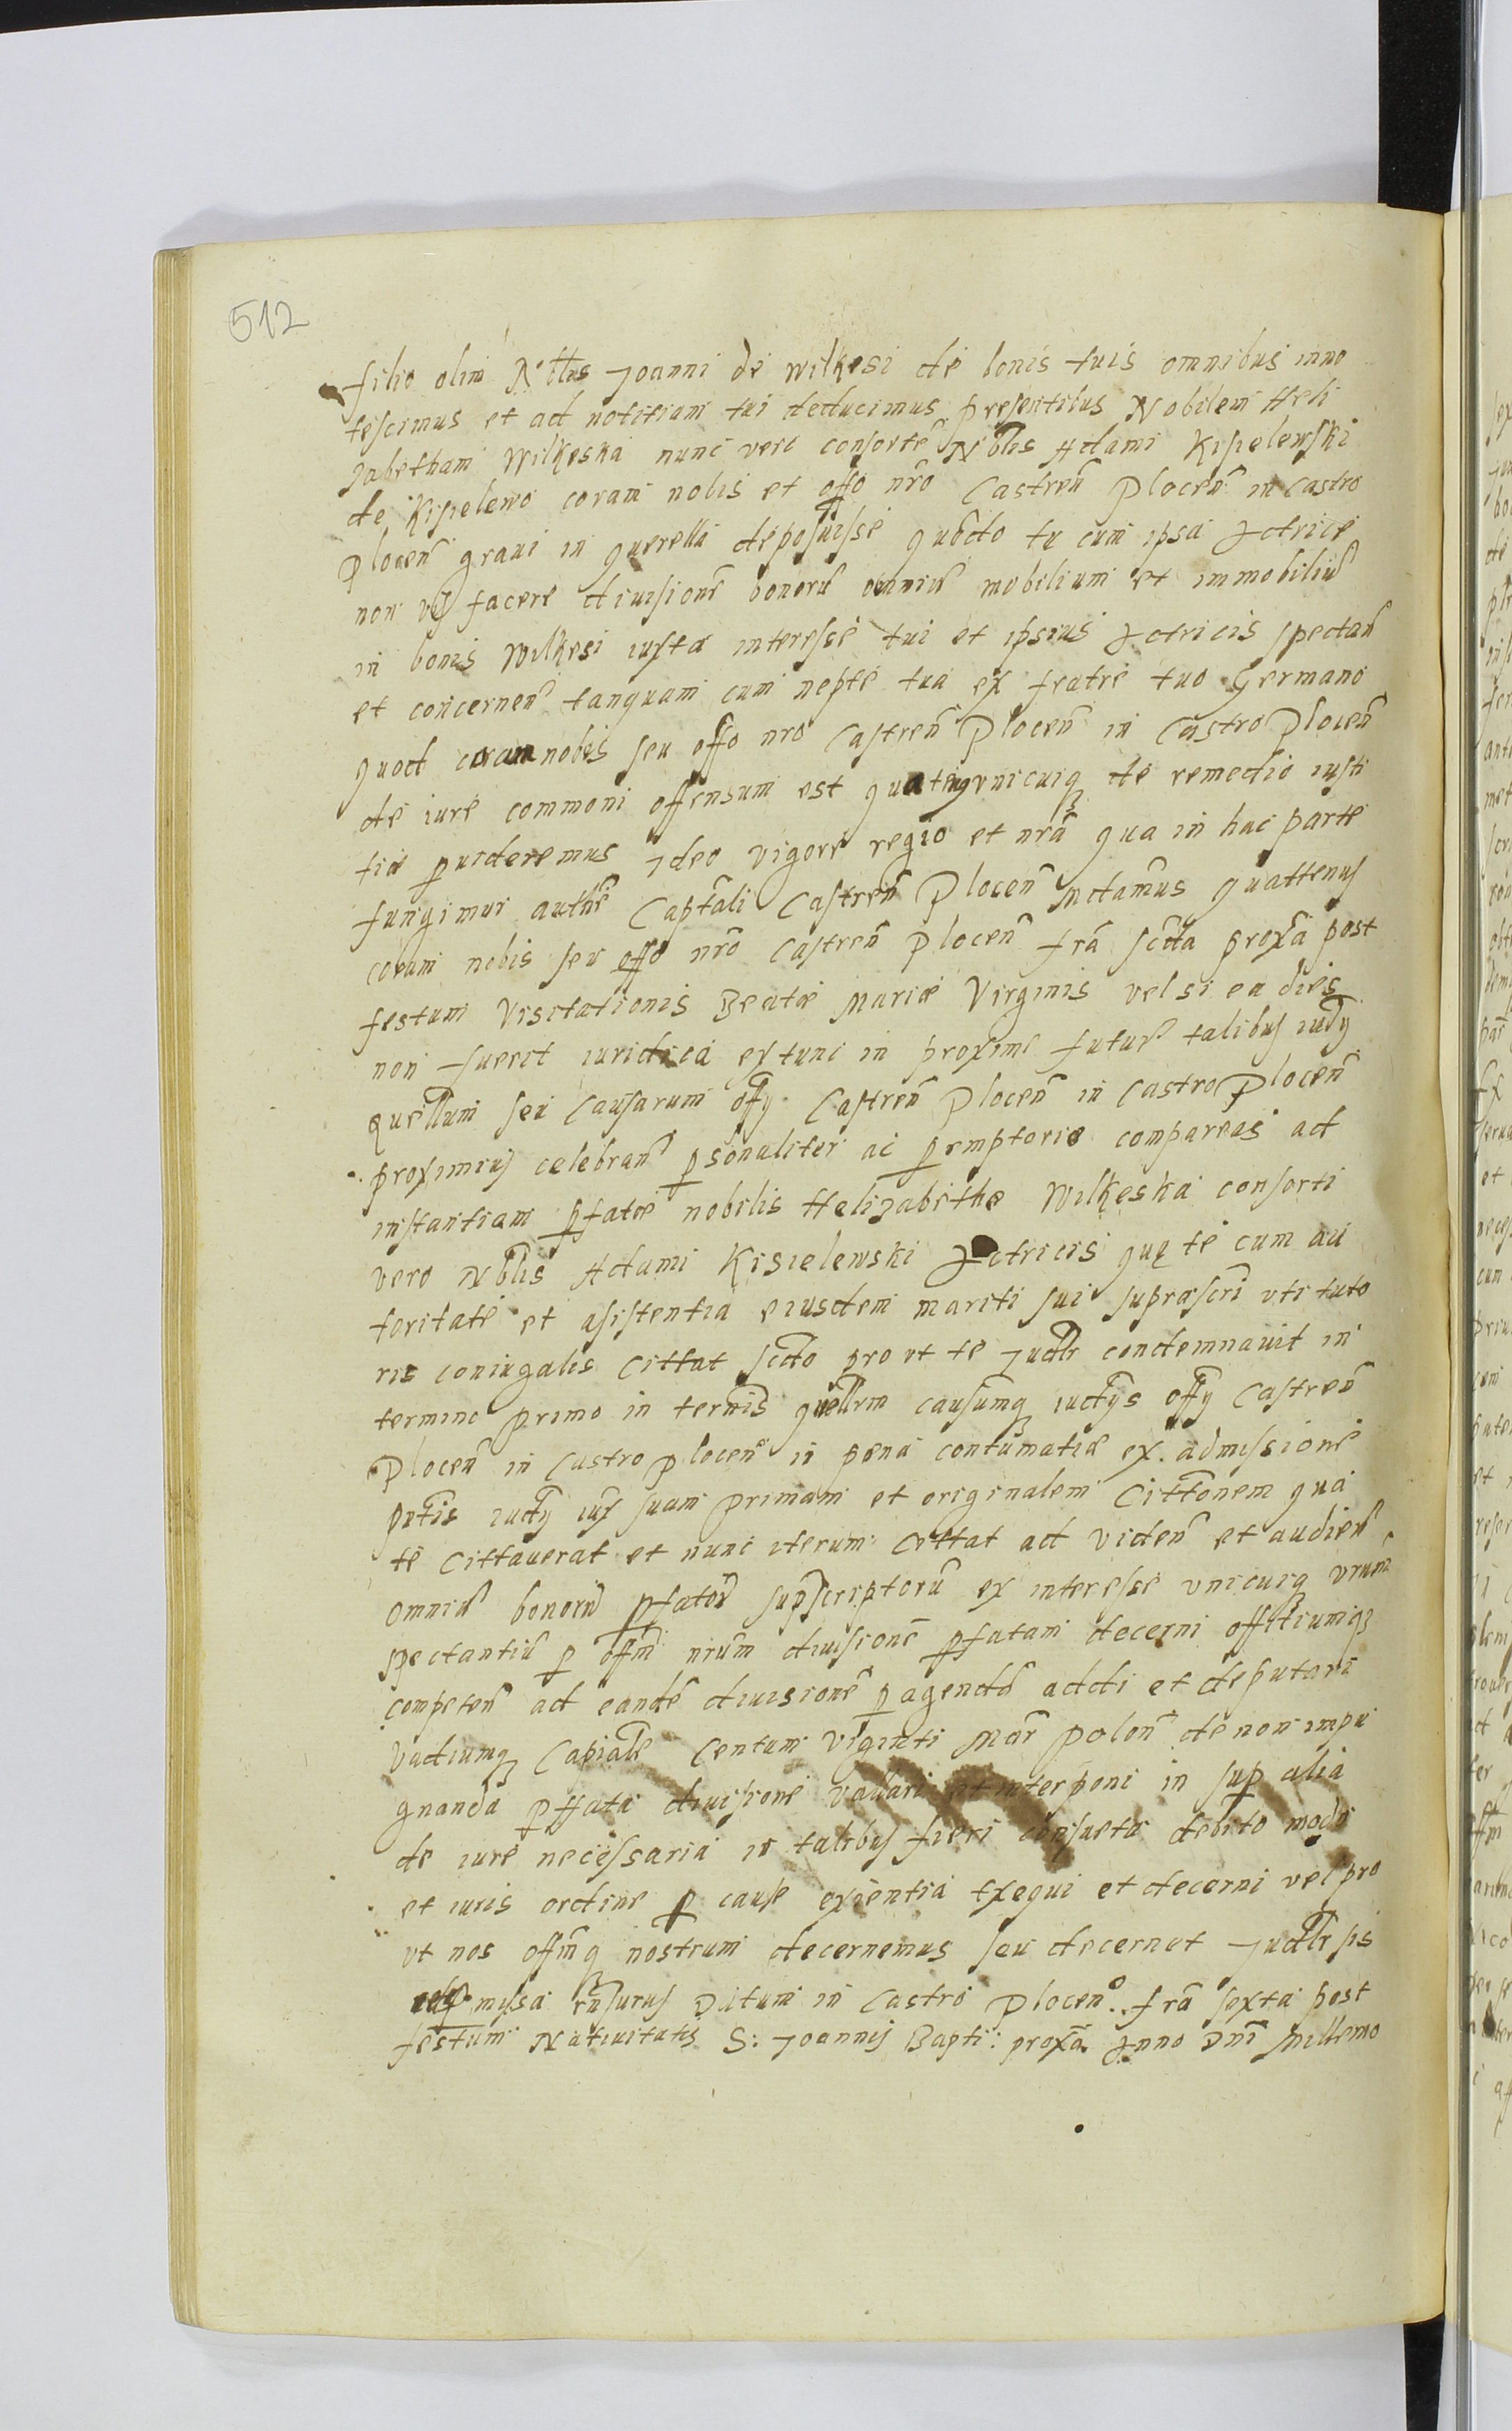 512
filio olim Nobilis Joanni de Wilkesi de bonis tuis omnibus inno
tescimus et ad notitiam tui deducimus presentibus Nobilem Heli
zabetham Wilkeska nunc vero consorte Nblis Adami Kisielewski
de Kisielewo coram nobis et offo nro Castren Plocen in castro
Plocen graui in querella deposuisse quodo tu cum ipsa Actrice
non vis facere diuisione bonoru omniu mobilium et immobiliu
in bonis Wilkesi iuxta interesse tui et ipsius Actricis spectan
et concernen tanquam cum nepte tua ex fratre tuo Germano
quod coram nobis seu offo nro Castren Plocen in Castro Plocen
de iure commoni offensum est unicuiq de remedio iusti
tiæ puideremus Ideo vigore regio et nrã qua in hac parte
fungimur authte Captali Castren Plocen Mctamus quattenus
coram nobis seu offo nro Castren Plocen frã scda proxã post
festum Visitationis Beatæ Mariæ Virginis vel si ea dies
non fuerit iuridica ex tunc in proxime futur talibus iudy
quellum seu Causarum offy Castren Plocen in Castro Plocen
proximius celebran psonaliter ac pemptorie compareas ad
instantiam pfatæ nobilis Helizabethe Wilkeska consorti
vero Nblis Adami Kisielewski Actricis quæ te cum au
toritate et asistentia eiusdem mariti sui suprascri uti tuto
ris coniugalis Cittat scdo pro ut te Judlr condemnauit in
termino primo in ternis quellrm causumq iudys offy Castren
Plocen in Castro Plocen in pena contumatiæ ex admissione
pntis iudy iux suam primam et originalem Cittonem qua
te Cittauerat et nunc iterum Cittat ad viden et audien
omniu bonoru pfatoru supscriptoru ex interesse unicuiq vrum
spectantiu p offm nrum diuisione pfatam decerni offitiumq
competen ad eande diuisione pagenda addi et deputari
Vadiumq Capiale Centum viginti Mar Polon de non impu
gnanda pffata diuisione vallari et interponi in sup alia
de iure necessaria in talibus fieri consueta debito modo
et iuris ordine p cause exientia exequi et decerni vel pro
ut nos offmq nostrum decernemus seu decernet Judlr sis
misa rnsurus Datum in Castro Plocen. frã sexta post
festum Natiuitatis S: Joannis Bapti: proxã Anno Dni Millemo